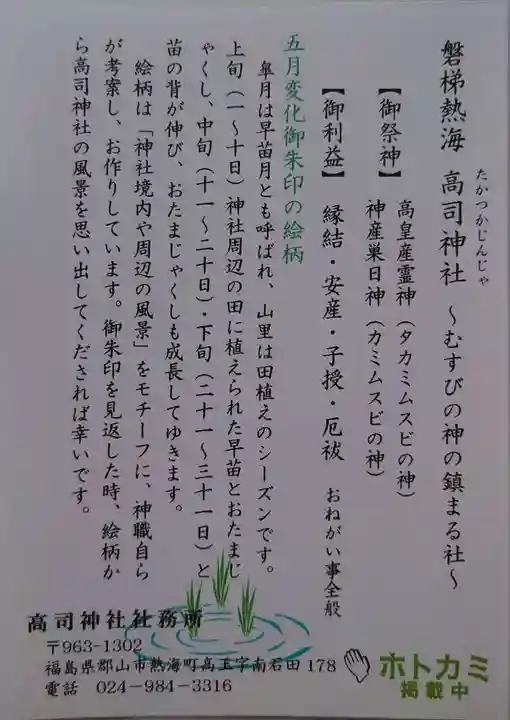 磐梯熱海 高司神社 ~むすびの神の鎮まる社~
たかつかじんじゃ
【御祭神】 高皇産霊神(タカミムスビの神)
神産巣日神(カミムスビの神)
【御利益】 縁結・安産・子授・厄祓 おねがい事全般
五月変化御朱印の絵柄
皐月は早苗月とも呼ばれ、山里は田植えのシーズンです。
上旬(一~十日)神社周辺の田に植えられた早苗とおたまじ
ゃくし、中旬(十一~二十日)・下旬(二十一~三十一日)と
苗の背が伸び、おたまじゃくしも成長してゆきます。
絵柄は「神社境内や周辺の風景」をモチーフに、神職自ら
が考案し、お作りしています。御朱印を見返した時、絵柄か
ら高司神社の風景を思い出してくだされば幸いです。
高司神社社務所
〒963-1302
福島県郡山市熱海町高玉字南岩田178
電話 024-984-3316
ホトカミ
掲載中